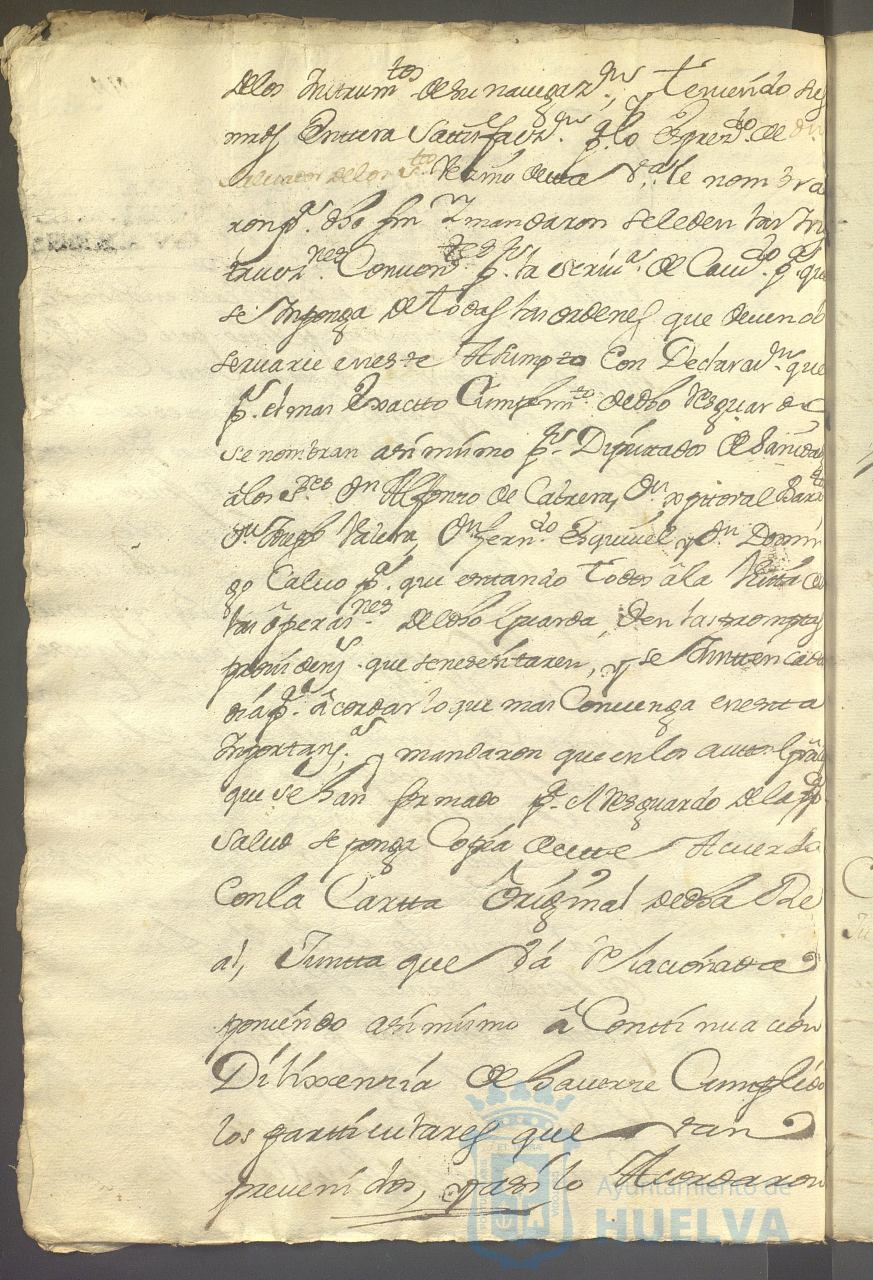 delos Instrum.tos de su navegaz.on, Teniendo sus
mrds Enttera Sattisfacz.on p.r lo Exprez.do de Dn
Salvador delos S.tos Vezino desta V.a le nombra
ron p.a dho fin y mandaron seleden las Ins
trucz.nes Conven.tes p.r la Escriu.a de Cauildo p.a que
se Inponga de todas las ordenes que deven ob
servarse en este Asumpto Con Declaraz.on que
p.a el mas Exactto Cumplim.to de dho Resguardo
se nombran asimismo p.r Diputados de Sanidad
â los S.res Dn Alfonzo de Cabrera, Dn
Dn Joseph Valera, Dn Fern.do Esquivel y Dn Domin
go Calvo p.a que estando Todos â la Vista de
las ôperaz.nes de dho Guarda, den las promptas
providens. que senesesitaren, y se Juntten cada
día p.a âcordar lo que mas Convenga en esta
Inportans.a; y mandaron que en los auttos
que se han formado p.a el Resguardo de la
Salud se ponga Copía de este Acuerdo
Con la Cartta Original de dha Re
al, Juntta que vá Relacionada
poniendo asimismo â Conttinuación
Dilixenzia de haverse Cumplido
los partticulares que van
prevenidos, y asi lo Acordaron
Ayuntamiento de
HUELVA